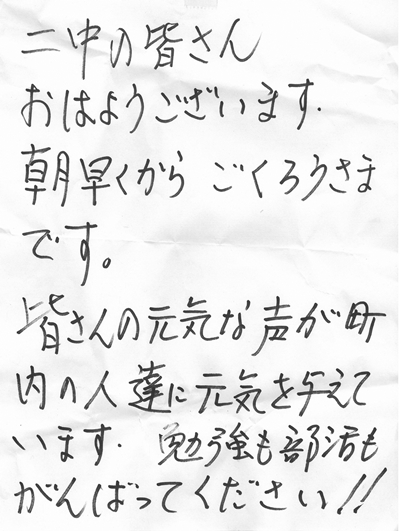 二中の皆さん
おはようございます.
朝早くから ごくろうさま
です。
皆さんの元気な声が町
内の人達に元気を与えて
います. 勉強も部活も
がんばってください!!